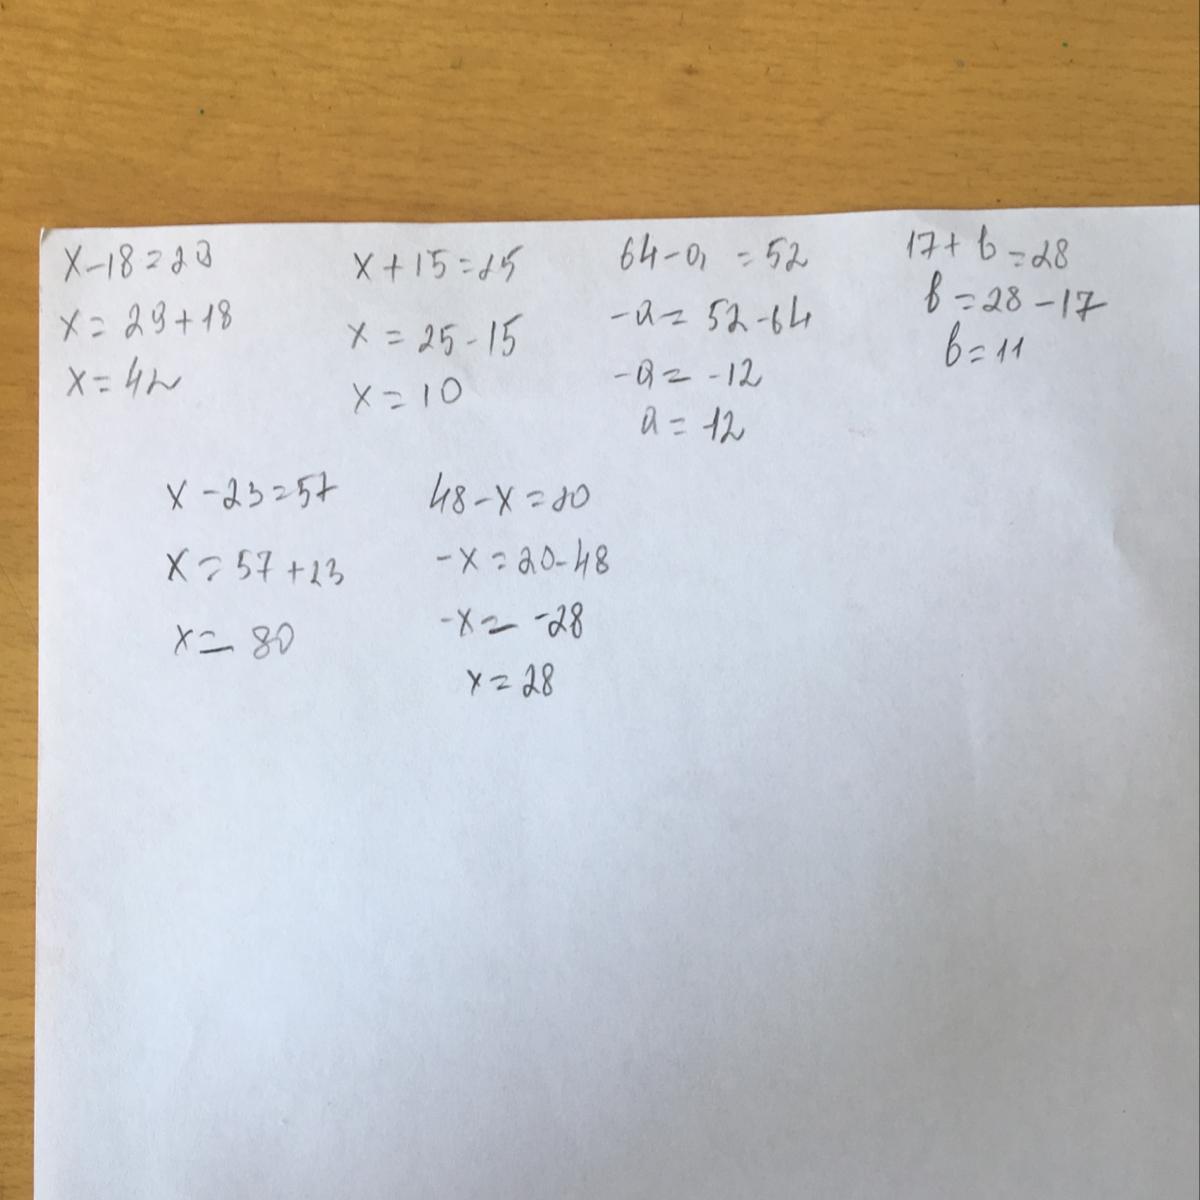 x-18=23
x=23+18
x=42
x+15=25
x=25-15
x=10
64-a=52
-a=52-64
-a=-12
a=12
17+b=28
b=28-17
b=11
x-23=57
x=57+23
x=80
48-x=20
-x=20-48
-x=-28
x=28